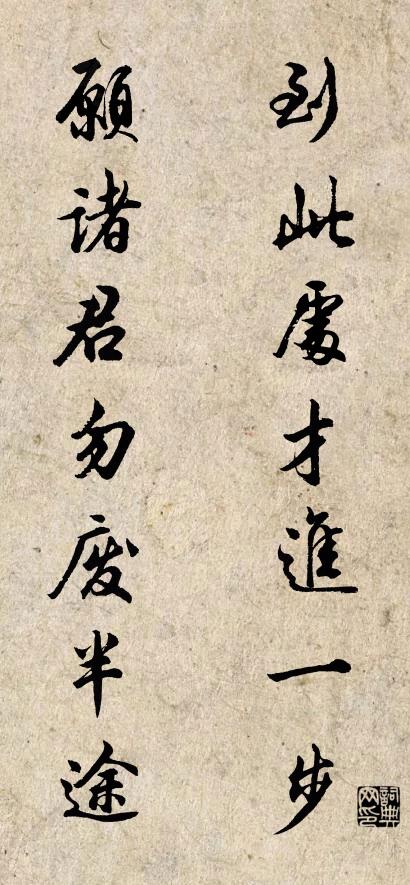 到此處才進一步
願諸君勿廢半途
詞典网印